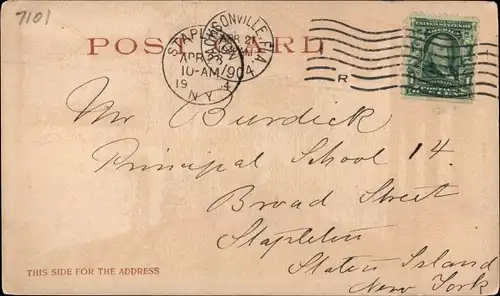 7101
POST CARD
STAPLETON
APR 23
10-AM
1904
N.Y.
JACKSONVILLE, FLA.
APR 21
1904
R
Mr Burdick
Principal School 14.
Broad Street
Stapleton
Staten Island
New York
THIS SIDE FOR THE ADDRESS